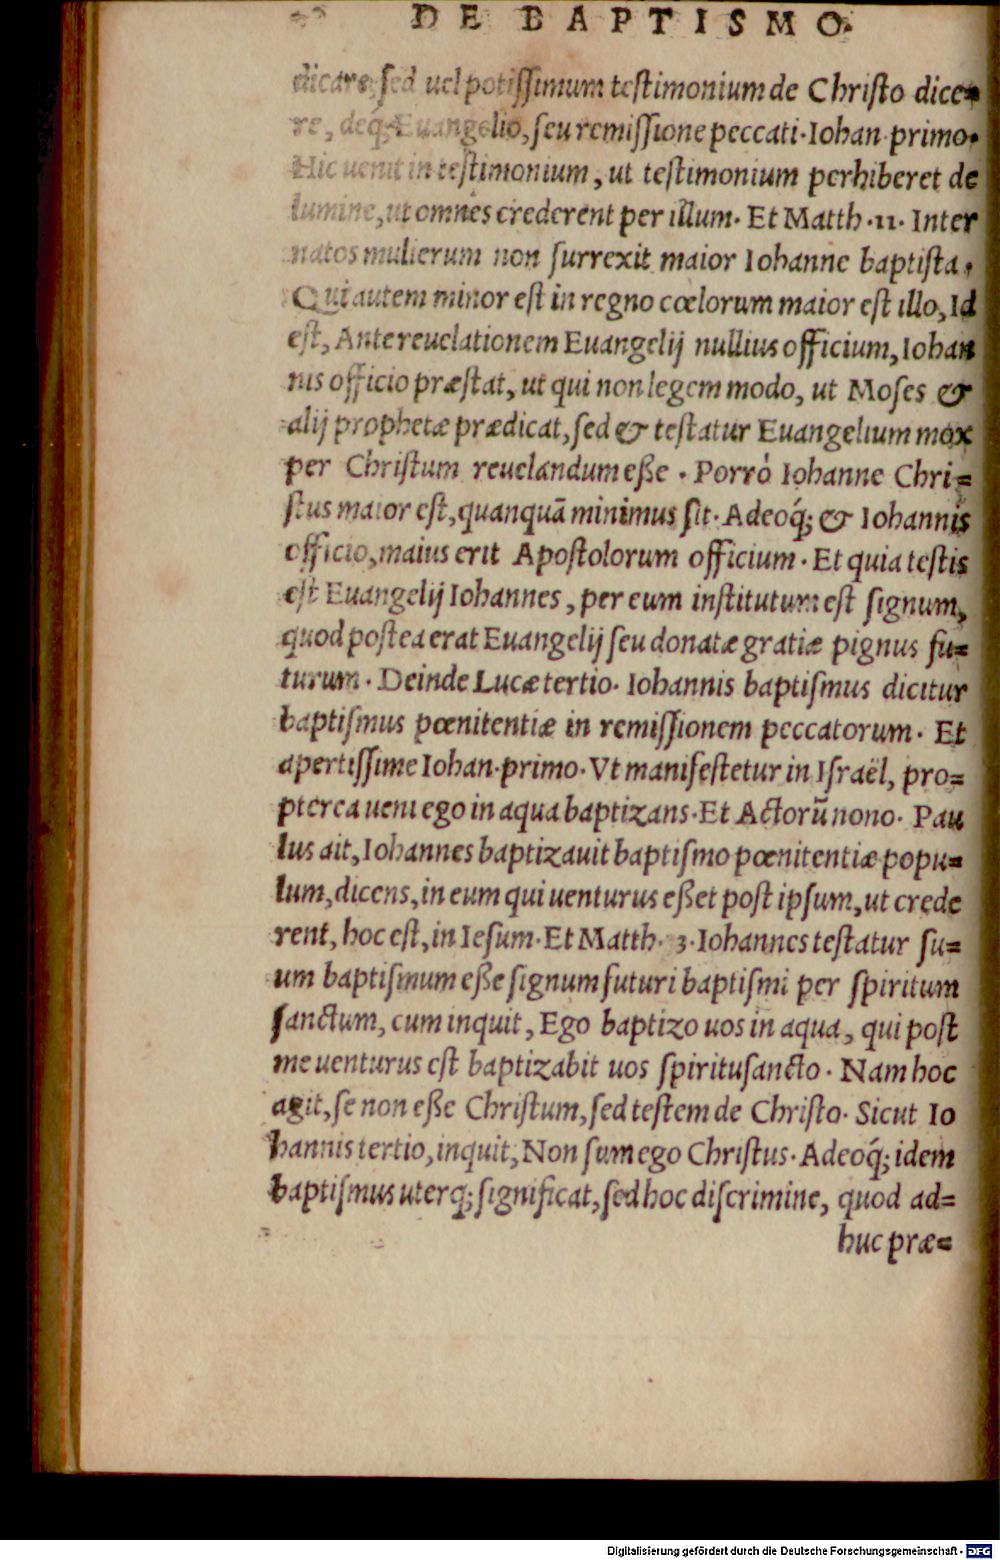 DE BAPTISMO.
dicare, sed uel potissimum testimonium de Christo dice=
re, deq́; Euangelio, seu remissione peccati. Iohan. primo.
Hic uenit in testimonium, ut testimonium perhiberet de
lumine, ut omnes crederent per illum. Et Matth. 11. Inter
natos mulierum non surrexit maior Iohanne baptista.
Qui autem minor est in regno cœlorum maior est illo, Id
est, Ante reuelationem Euangelij nullius officium, Iohan
nis officio præstat, ut qui non legem modo, ut Moses &
alij prophetæ prædicat, sed & testatur Euangelium mox
per Christum reuelandum eße. Porrò Iohanne Chri=
stus maior est, quanquã minimus sit. Adeoq́; & Iohannis
officio, maius erit Apostolorum officium. Et quia testis
est Euangelij Iohannes, per eum institutum est signum,
quod postea erat Euangelij seu donatæ gratiæ pignus fu=
turum. Deinde Lucæ tertio. Iohannis baptismus dicitur
baptismus pœnitentiæ in remissionem peccatorum. Et
apertissime Iohan. primo. Vt manifestetur in Israël, pro=
pterea ueni ego in aqua baptizans. Et Actorũ nono. Pau
lus ait, Iohannes baptizauit baptismo pœnitentiæ popu=
lum, dicens, in eum qui uenturus eßet post ipsum, ut crede
rent, hoc est, in Iesum. Et Matth. 3. Iohannes testatur su=
um baptismum eße signum futuri baptismi per spiritum
sanctum, cum inquit, Ego baptizo uos in aqua, qui post
me uenturus est baptizabit uos spiritusancto. Nam hoc
agit, se non eße Christum, sed testem de Christo. Sicut Io
hannis tertio, inquit, Non sum ego Christus. Adeoq́; idem
baptismus uterq; significat, sed hoc discrimine, quod ad=
huc præ=
Digitalisierung gefördert durch die Deutsche Forschungsgemeinschaft - DFG